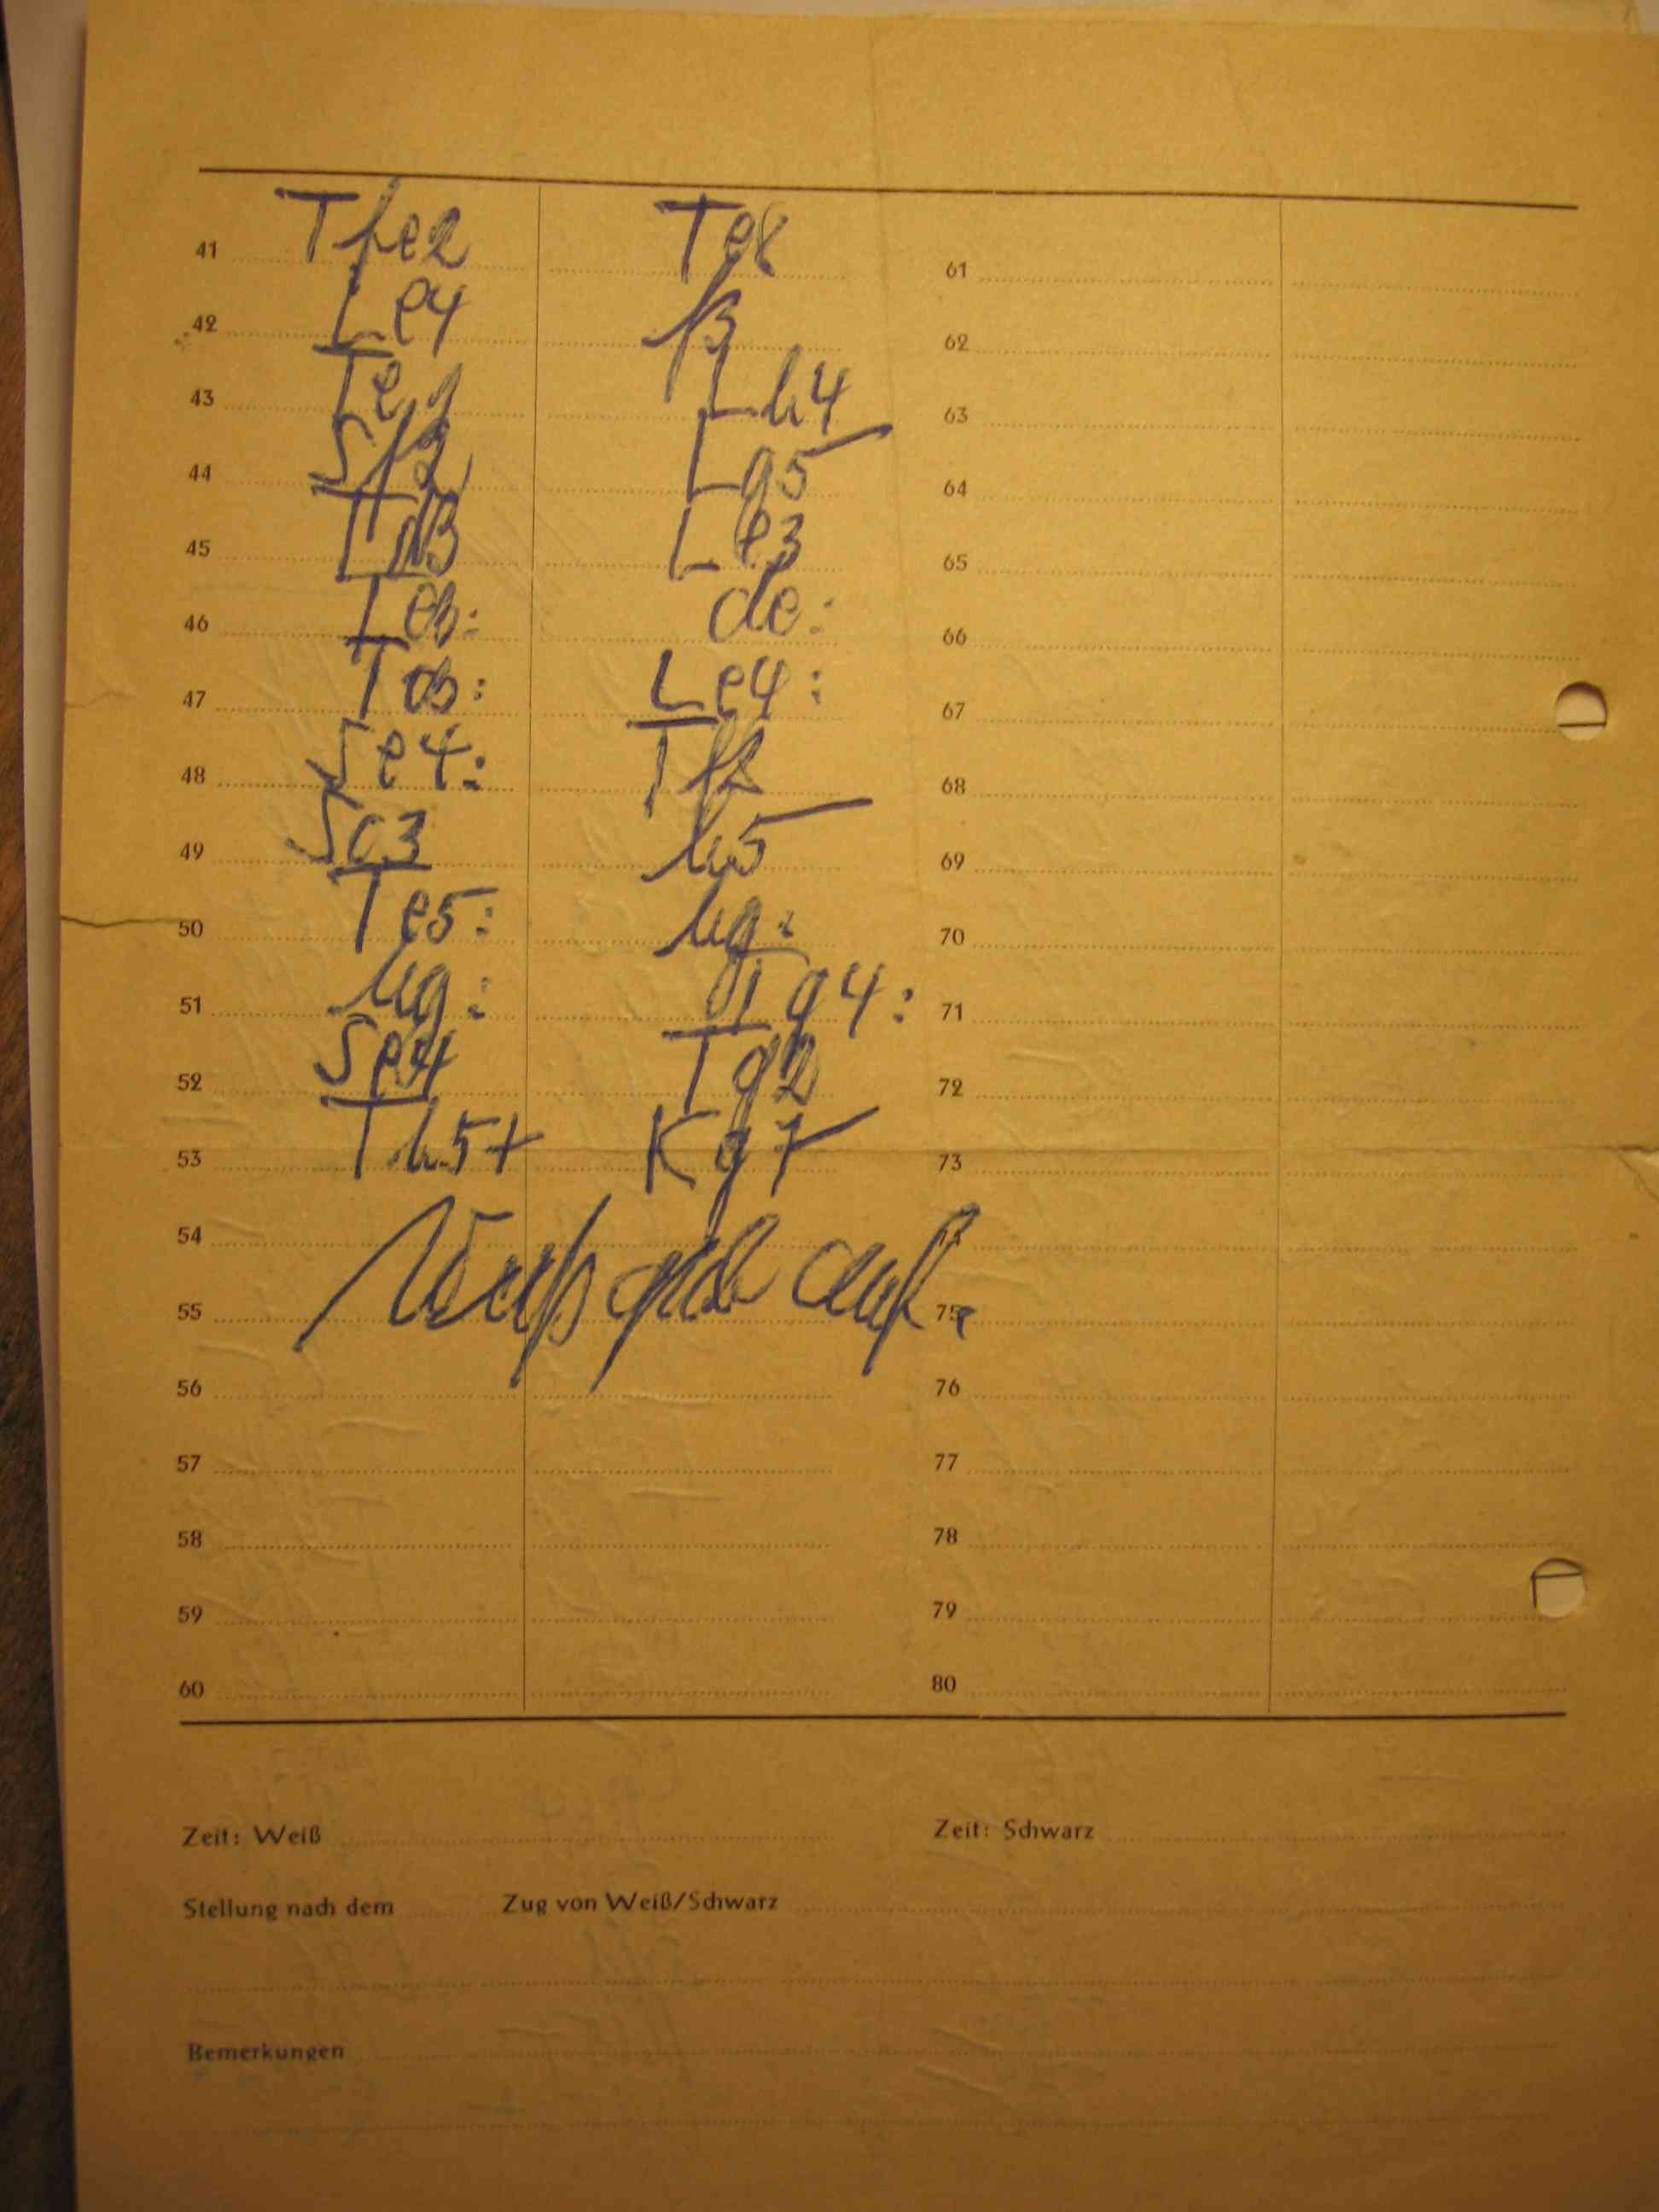 41 Tfe2 Te8 61
42 Le4 f3 62
43 Te1 Lh4 63
44 Sf2 Lg5 64
45 Ld3 Le3 65
46 Le3: de: 66
47 Te3: Le4: 67
48 Se4: Tf2 68
49 Sc3 h5 69
50 Te5: hg: 70
51 hg: Tg4: 71
52 Se4 Tg2 72
53 Th5+ Kg7 73
54
Weiß gab auf.
55 75
56 76
57 77
58 78
59 79
60 80
Zeit: Weiß Zeit: Schwarz
Stellung nach dem Zug von Weiß/Schwarz
Bemerkungen